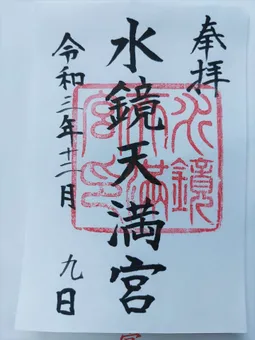 奉拝
水鏡天満宮
令和三年十二月九日
水鏡天満宮印